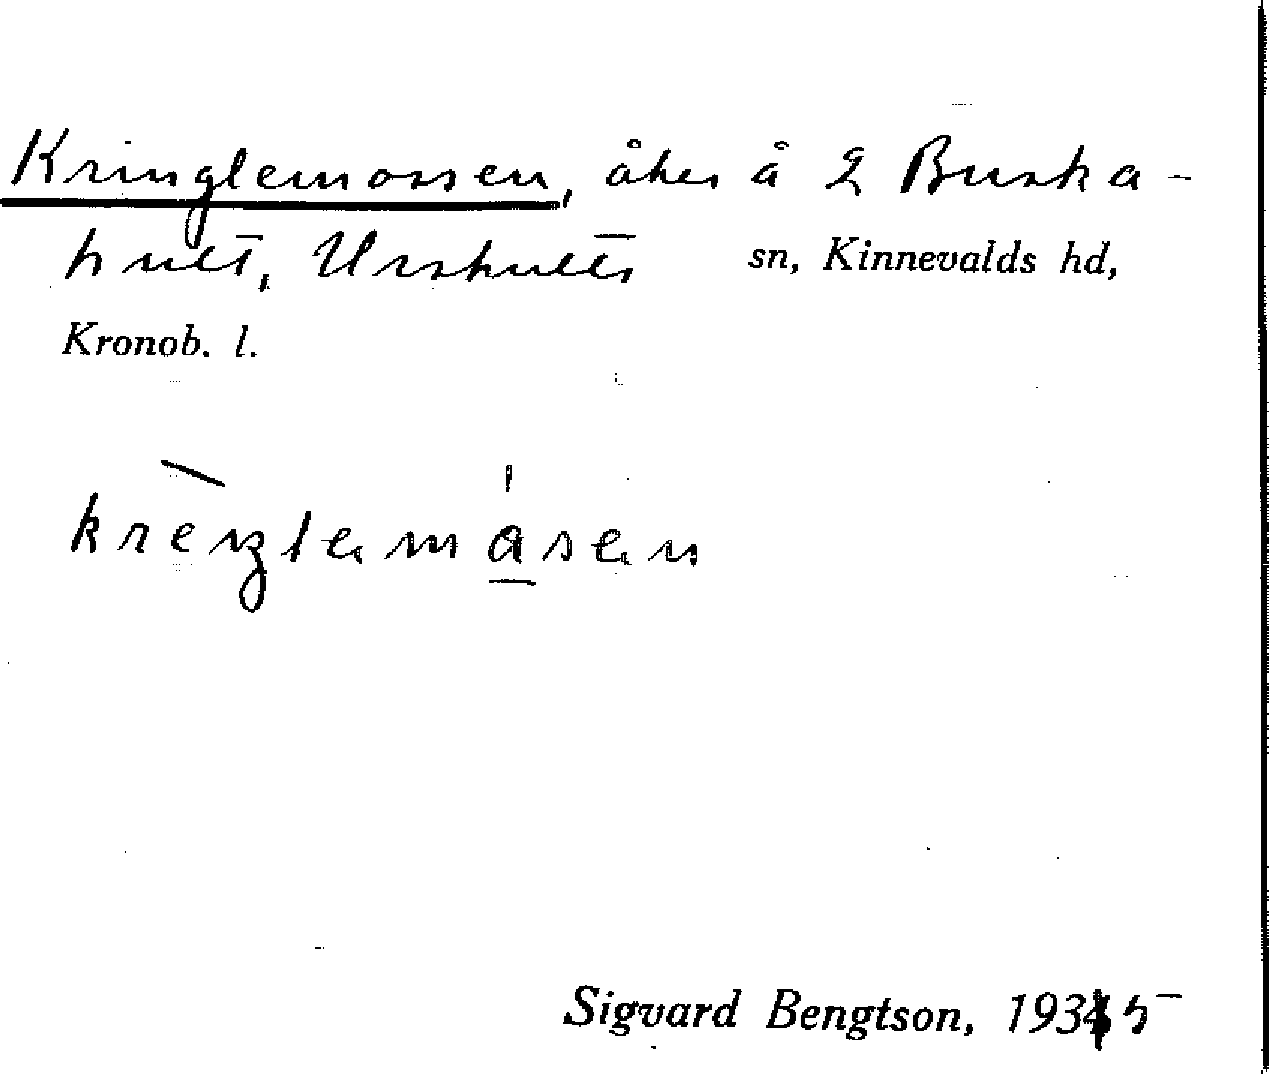 Kringlemossen, åker å 2 Buska-
hult, Urshults sn, Kinnevalds hd,
Kronob. l.
kreŋlemåsen
Sigvard Bengtson, 1935